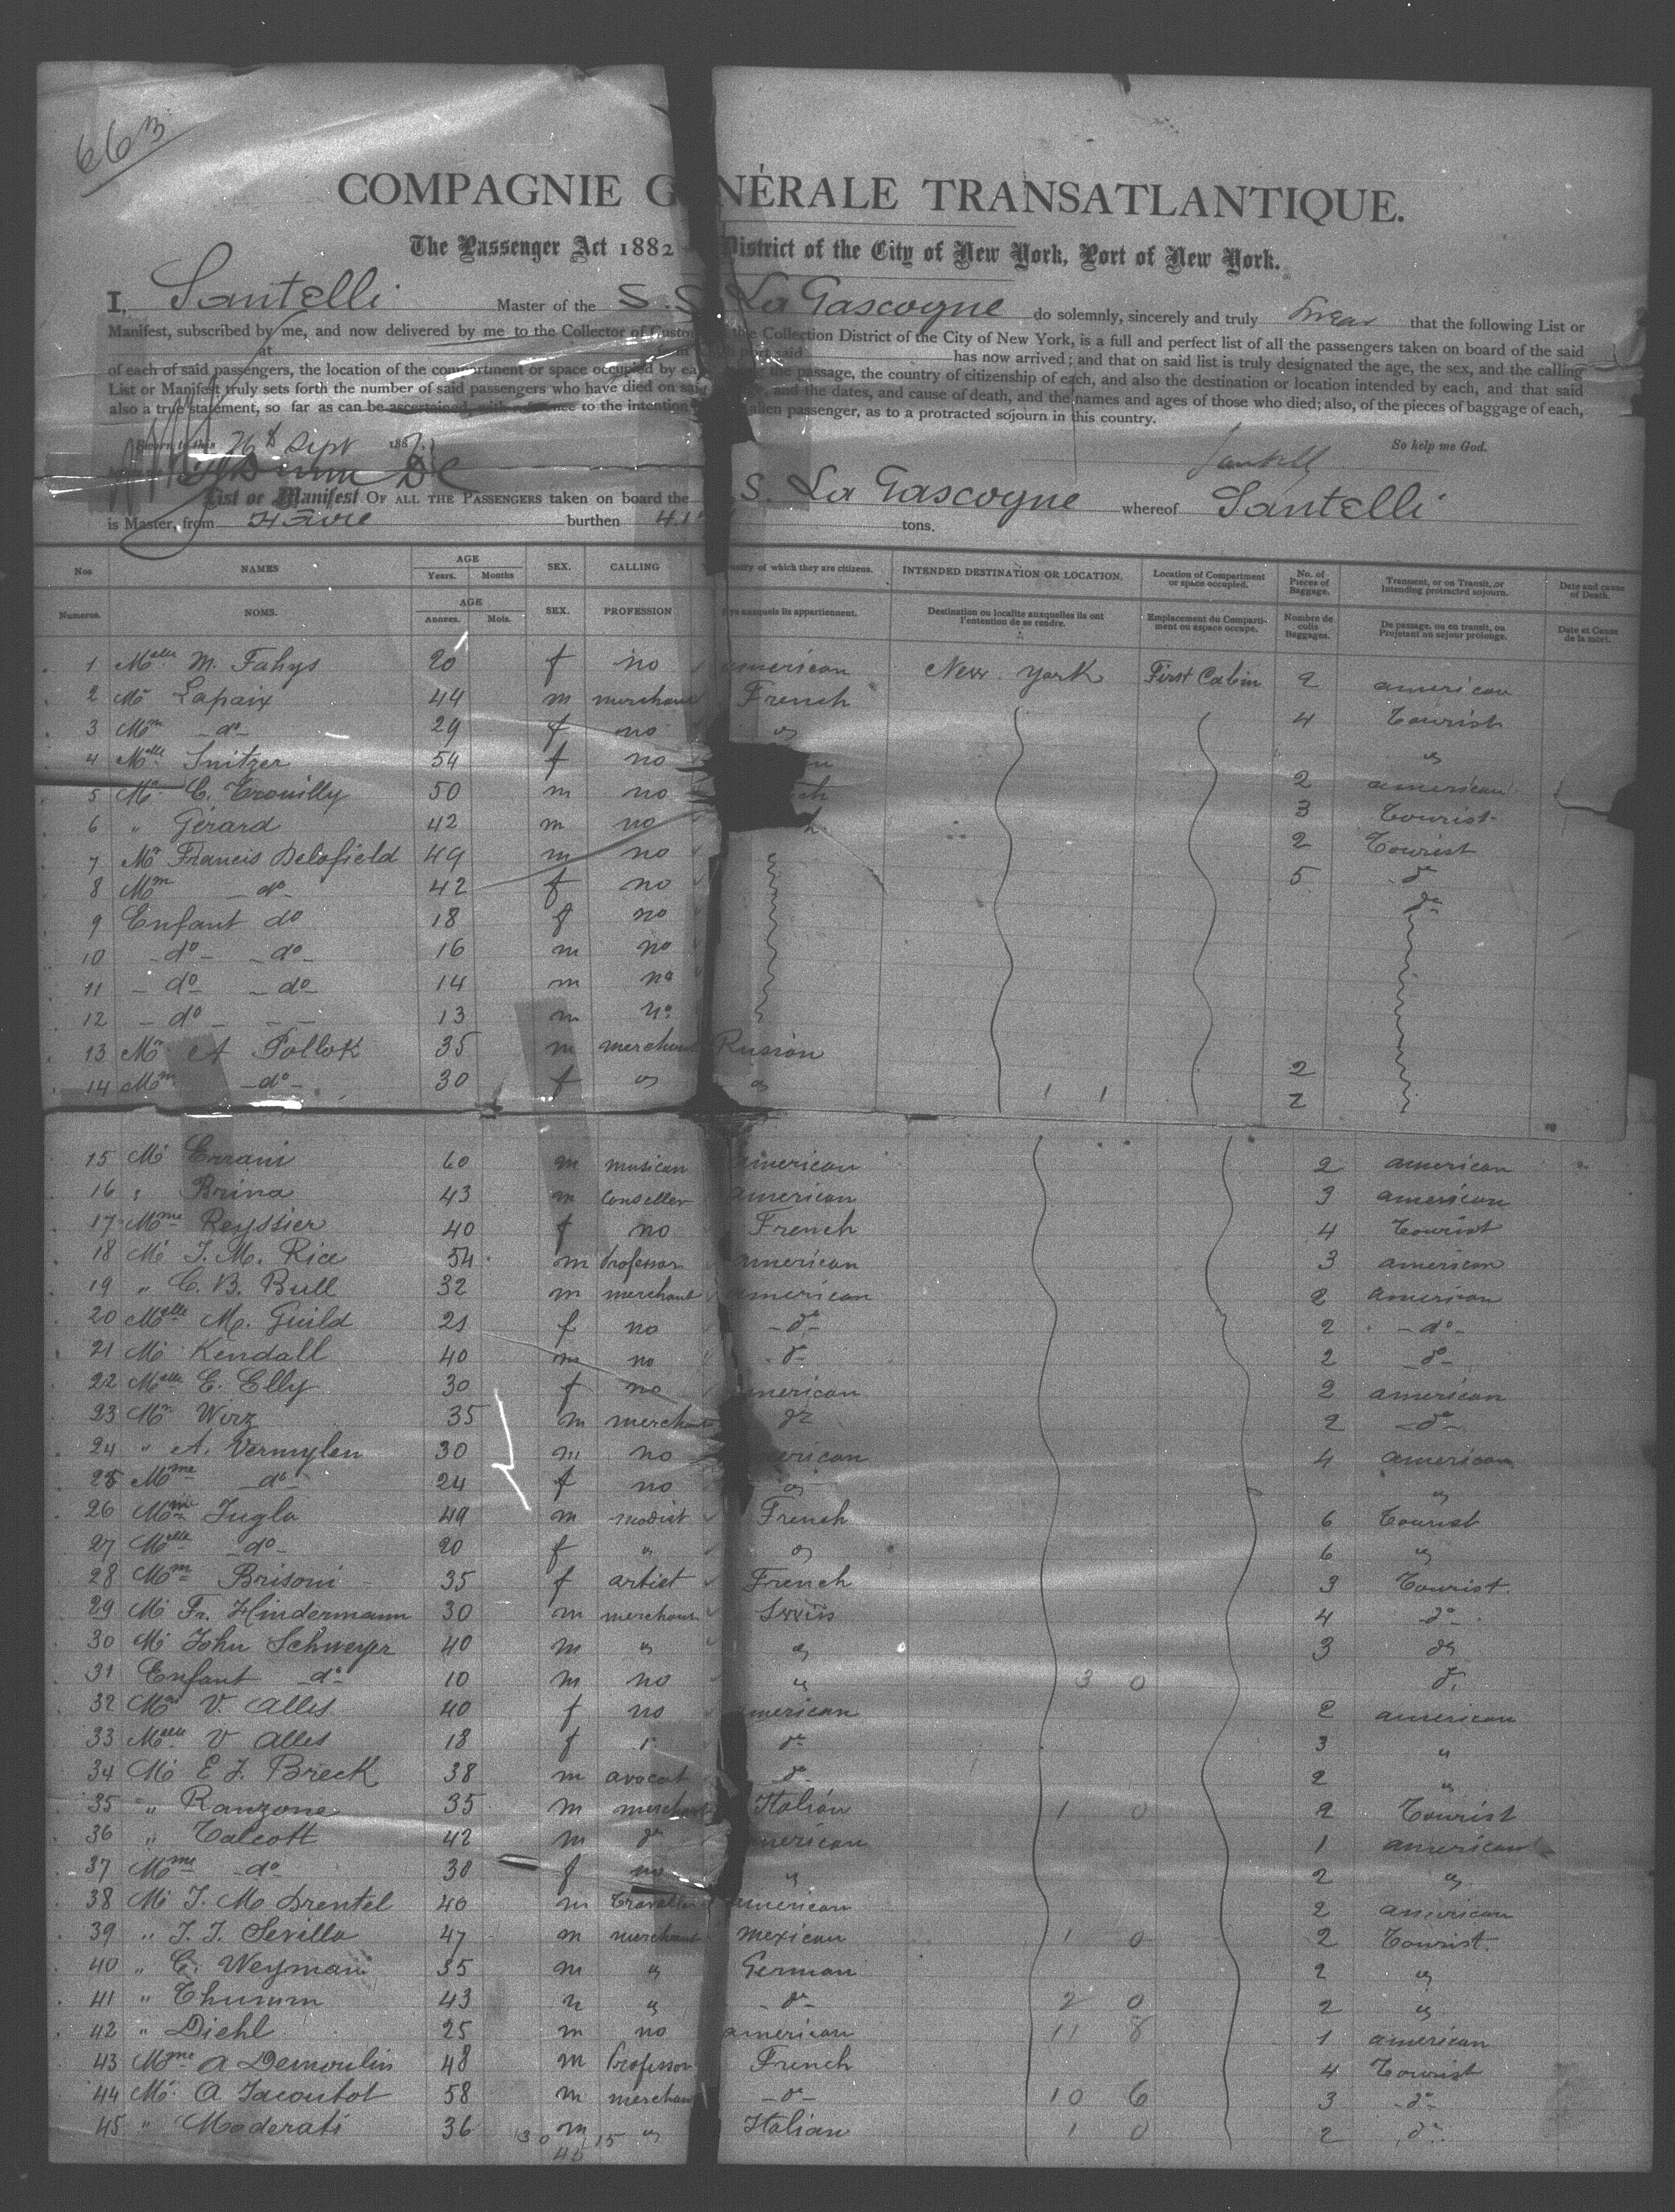 663
COMPAGNIE G NÉRALE TRANSATLANTIQUE.
The Passenger Act 1882 District of the City of New York, Port of New York.
I, Santelli Master of the S.S. La Gascogne do solemnly, sincerely and truly swear that the following List or
Manifest, subscribed by me, and now delivered by me to the Collector of Custo the Collection District of the City of New York, is a full and perfect list of all the passengers taken on board of the said
at port said has now arrived; and that on said list is truly designated the age, the sex, and the calling
of each of said passengers, the location of the compartment or space occupied by ea the passage, the country of citizenship of each, and also the destination or location intended by each, and that said
List or Manifest truly sets forth the number of said passengers who have died on said and the dates, and cause of death, and the names and ages of those who died; also, of the pieces of baggage of each,
also a true statement, so far as can be ascertained, with reference to the intention alien passenger, as to a protracted sojourn in this country.
Sworn to this 26 Sept 188
So help me God.
Santelli
List or Manifest OF ALL THE PASSENGERS taken on board the S. La Gascogne whereof Santelli
is Master, from Havre burthen tons.
Nos NAMES AGE Years. Months SEX. CALLING ntry of which they are citizens. INTENDED DESTINATION OR LOCATION. Location of Compartment or space occupied. No. of Pieces of Baggage. Transient, or on Transit, or Intending protracted sojourn. Date and cause of Death.
Numeros. NOMS. AGE Années. Mois. SEX. PROFESSION auxquels ils appartiennent. Destination ou localite auxquelles ils ont l'entention de se rendre. Emplacement du Compartiment ou espace occupe. Nombre de colis Baggages. De passage, ou en transit, ou Projetant au sejour prolonge. Date et Cause de la mort.
1 Melle M. Fahys 20 f no american New York First Cabin 2 american
2 Mr Lapaix 44 m merchant French 4 Tourist
3 Mm do 29 f no " "
4 Melle Snitzer 54 f no 2 american
5 Mr C. Trouilly 50 m no ch 3 Tourist
6 " Gérard 42 m no h. 2 Tourist
7 Mr Francis Delafield 49 m no 5 do
8 Mm do 42 f no do
9 Enfant do 18 f no
10 do do 16 m no
11 do do 14 m no
12 do 13 m no
13 Mr A Pollok 35 m merchant Russian 2
14 Mm do 30 f " " 1 1 2
15 Mr Errani 60 m musican american 2 american
16 " Brina 43 m Conseller american 3 american
17 Mme Reyssier 40 f no French 4 Tourist
18 Mr J. M. Rice 54 m Professor american 3 american
19 " C. B. Bull 32 m merchant american 2 american
20 Melle M. Guild 21 f no do 2 do
21 Mr Kendall 40 m no do 2 do
22 Melle E. Elly 30 f no american 2 american
23 Mr Wirz 35 m merchant do 2 do
24 " A. Vermylen 30 m no erican 4 american
25 Mme do 24 f no " "
26 Mme Jugla 49 m modist French 6 Tourist
27 Melle do 20 f " " 6 "
28 Mm Brisoni 35 f artist French 3 Tourist.
29 Mr Fr. Hindermann 30 m merchant Swiis 4 do
30 Mr John Schweyer 40 m " " 3 do
31 Enfant do 10 m no " 3 0 do
32 Mme V. Alles 40 f no american 2 american
33 Melle V Alles 18 f do 3 "
34 Mr E J. Breck 38 m avocat do 2 "
35 " Ranzone 35 m merchant Italian 1 0 2 Tourist
36 " Talcott 42 m do american 1 american
37 Mme do 30 f no " 2 "
38 Mr J. M Drentel 40 m Traveller american 2 american
39 " J. J. Sevilla 47 m merchant mexican 1 0 2 Tourist.
40 " C. Weymann 35 m " German 2 "
41 " Thumm 43 m " do 2 0 2 "
42 " Diehl 25 m no american 11 8 1 american
43 Mme A Demoulin 48 m Professor French 4 Tourist
44 Mr A Jacoutot 58 m merchant do 10 6 3 do
45 " Moderati 36 m " Italian 1 0 2 do
30 15
45